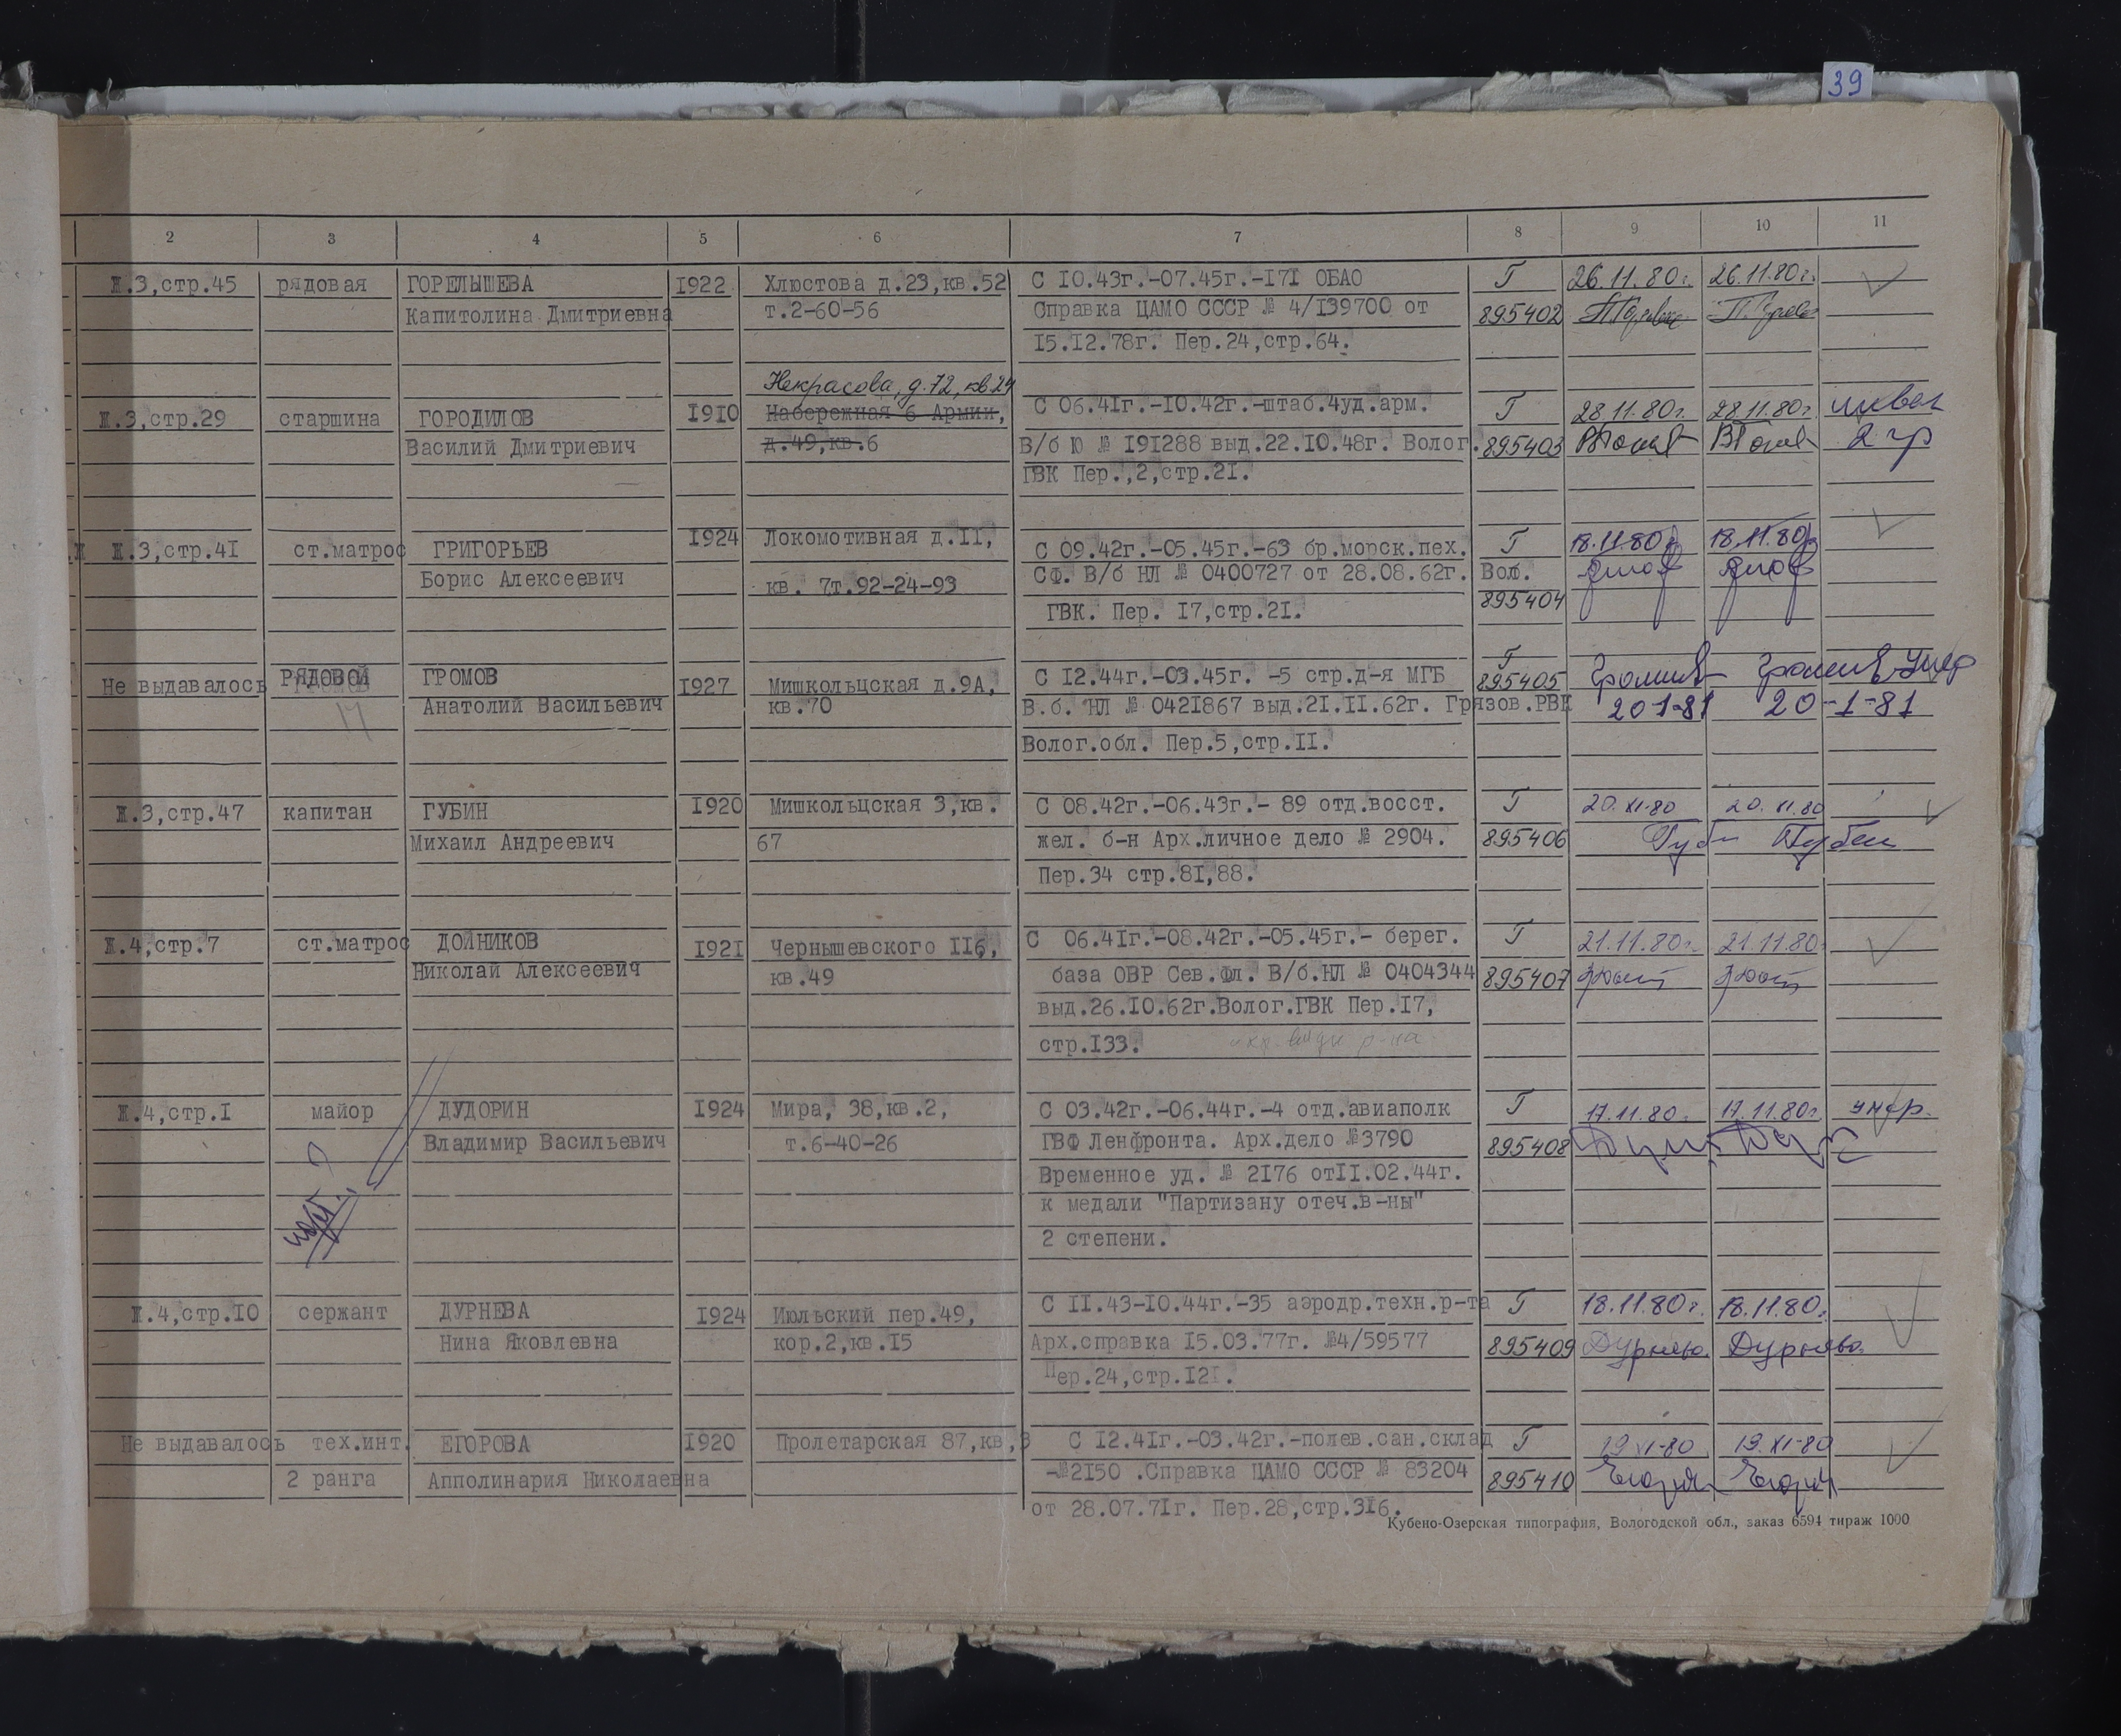 39
2 3 4 5 6 7 8 9 10 11
Ж.3,стр.45 рядовая ГОРЕЛЫШЕВА 1922 Хлюстова д.23,кв.52 С 10.43г.-07.45г.-171 ОБАО Г 26.11.80г. 26.11.80г.
Капитолина Дмитриевна т.2-60-56 Справка ЦАМО СССР № 4/139700 от 895402
15.12.78г. Пер.24,стр.64.
Некрасова, д.72, кв 24
Ж.3,стр.29 старшина ГОРОДИЛОВ 1910 Набережная 6 Армии, С 06.41г.-10.42г.-штаб.4уд.арм. Г 28.11.80г. 28.11.80г. инвал
Василий Дмитриевич д.49,кв.6 В/б Ю № 191288 выд.22.10.48г. Волог. 895403 2 гр
ГВК Пер.,2,стр.21.
Ж Ж.3,стр.41 ст.матрос ГРИГОРЬЕВ 1924 Локомотивная д.11, С 09.42г.-05.45г.-63 бр.морск.пех. Г 18.11.80г 18.11.80г
Борис Алексеевич кв. 7т.92-24-93 СФ. В/б НЛ № 0400727 от 28.08.62г. Вол.
ГВК. Пер. 17,стр.21. 895404
Не выдавалось РЯДОВОЙ ГРОМОВ 1927 Мишкольцская д.9А, С 12.44г.-03.45г. -5 стр.д-я МГБ Г 895405 умер
17 Анатолий Васильевич кв.70 В.б. НЛ № 0421867 выд.21.11.62г. Грязов.РВК 20-1-81 20-1-81
Волог.обл. Пер.5,стр.11.
Ж.3,стр.47 капитан ГУБИН 1920 Мишкольцская 3,кв. С 08.42г.-06.43г.- 89 отд.восст. Г 20.XI.80 20.XI.80
Михаил Андреевич 67 жел. б-н Арх.личное дело № 2904. 895406
Пер.34 стр.81,88.
Ж.4,стр.7 ст.матрос ДОЙНИКОВ 1921 Чернышевского 116, С 06.41г.-08.42г.-05.45г.- берег. Г 21.11.80г. 21.11.80.
Николай Алексеевич кв.49 база ОВР Сев.Фл. В/б.НЛ № 0404344 895407
выд.26.10.62г.Волог.ГВК Пер.17,
стр.133.
Ж.4,стр.1 майор ДУДОРИН 1924 Мира, 38,кв.2, С 03.42г.-06.44г.-4 отд.авиаполк Г 17.11.80г. 17.11.80г. умер.
Владимир Васильевич т.6-40-26 ГВФ Ленфронта. Арх.дело №3790 895408
Временное уд. № 2176 от11.02.44г.
к медали "Партизану отеч.в-ны"
2 степени.
Ж.4,стр.10 сержант ДУРНЕВА 1924 Июльский пер.49, С 11.43-10.44г.-35 аэродр.техн.р-та Г 18.11.80г. 18.11.80г.
Нина Яковлевна кор.2,кв.15 Арх.справка 15.03.77г. №4/59577 895409 Дурнева. Дурнева.
Пер.24,стр.121.
Не выдавалось тех.инт. ЕГОРОВА 1920 Пролетарская 87,кв,3 С 12.41г.-03.42г.-полев.сан.склад Г 19 XI-80 19.XI-80
2 ранга Апполинария Николаевна -№2150 .Справка ЦАМО СССР № 83204 895410
от 28.07.71г. Пер.28,стр.316.
Кубено-Озерская типография, Вологодской обл., заказ 6594 тираж 1000